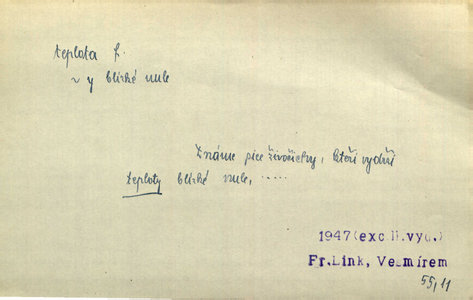 teplota f.
~ y blízké nule
Známe sice živočichy, kteří vydrží
teploty blízké nule, .....
1947 (exc. II. vyd.)
Fr. Link, Vesmírem
55, 11